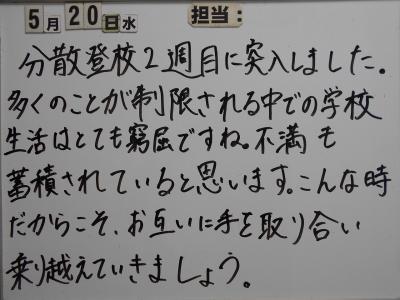 5月20日水 担当:
分散登校2週目に突入しました。
多くのことが制限される中での学校
生活はとても窮屈ですね。不満も
蓄積されていると思います。こんな時
だからこそ、お互いに手を取り合い
乗り越えていきましょう。